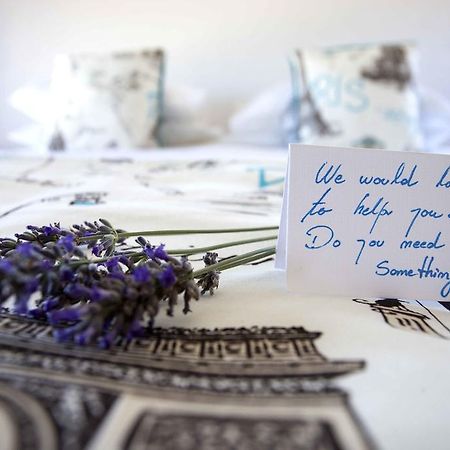 RIS
We would
to help you
Do you need
Something